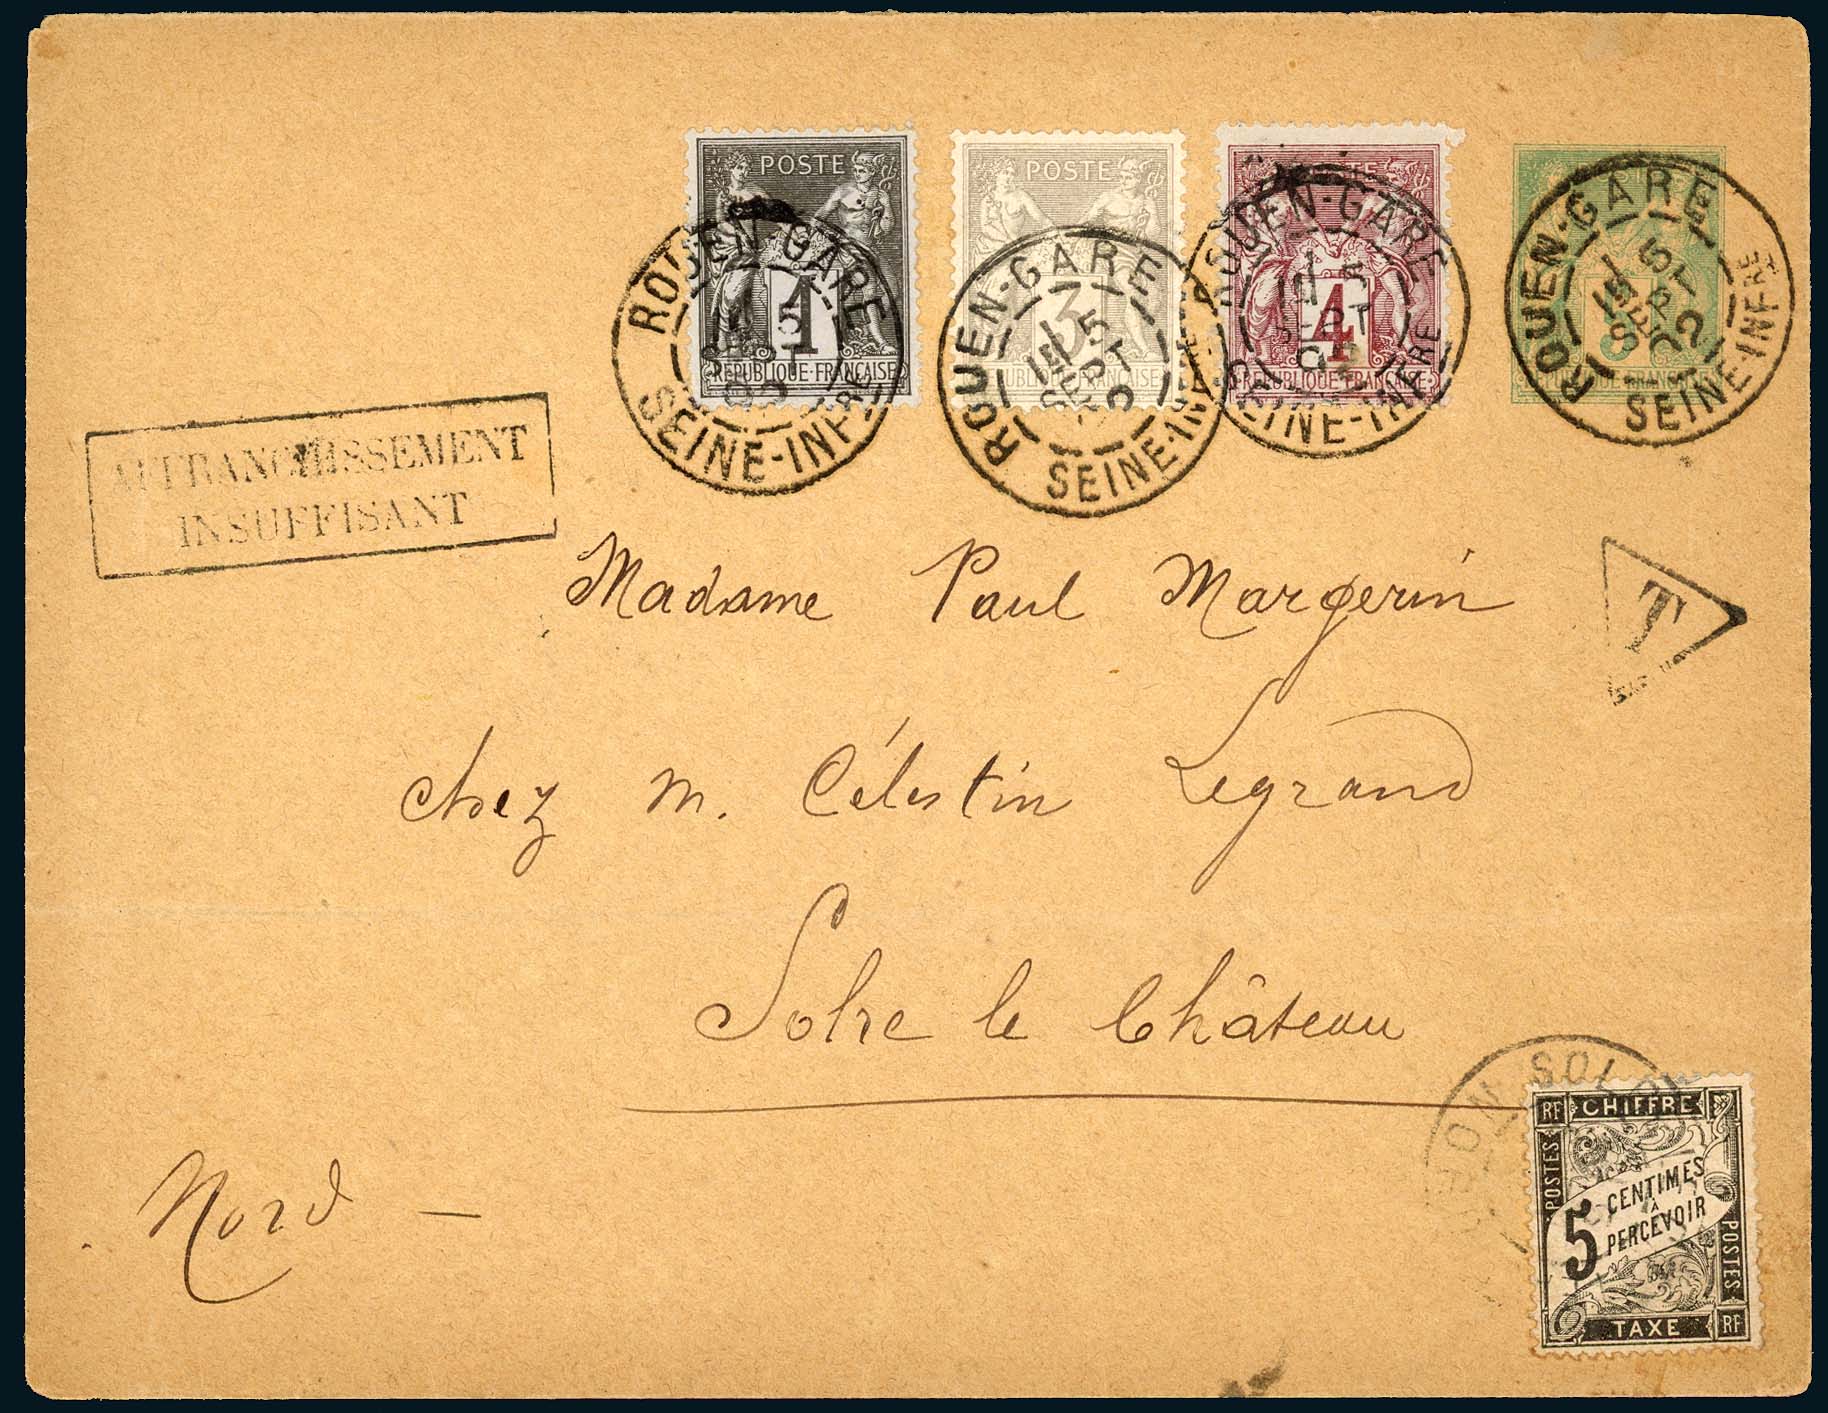 POSTE
1
REPUBLIQUE·FRANÇAISE
ROUEN-GARE
15
SEPT
SEINE-INFRE
POSTE
3
REPUBLIQUE·FRANÇAISE
ROUEN-GARE
15
SEPT
SEINE-INFRE
4
REPUBLIQUE·FRANÇAISE
ROUEN-GARE
15
SEPT
02
SEINE-INFRE
ROUEN-GARE
15
SEPT
02
SEINE-INFRE
AFFRANCHISSEMENT
INSUFFISANT
Madame Paul Margerin
T
chez M. Célestin Legrand
Solre le Château
Nord —
RF CHIFFRE
POSTES
5 CENTIMES
À
PERCEVOIR
POSTES
TAXE RF